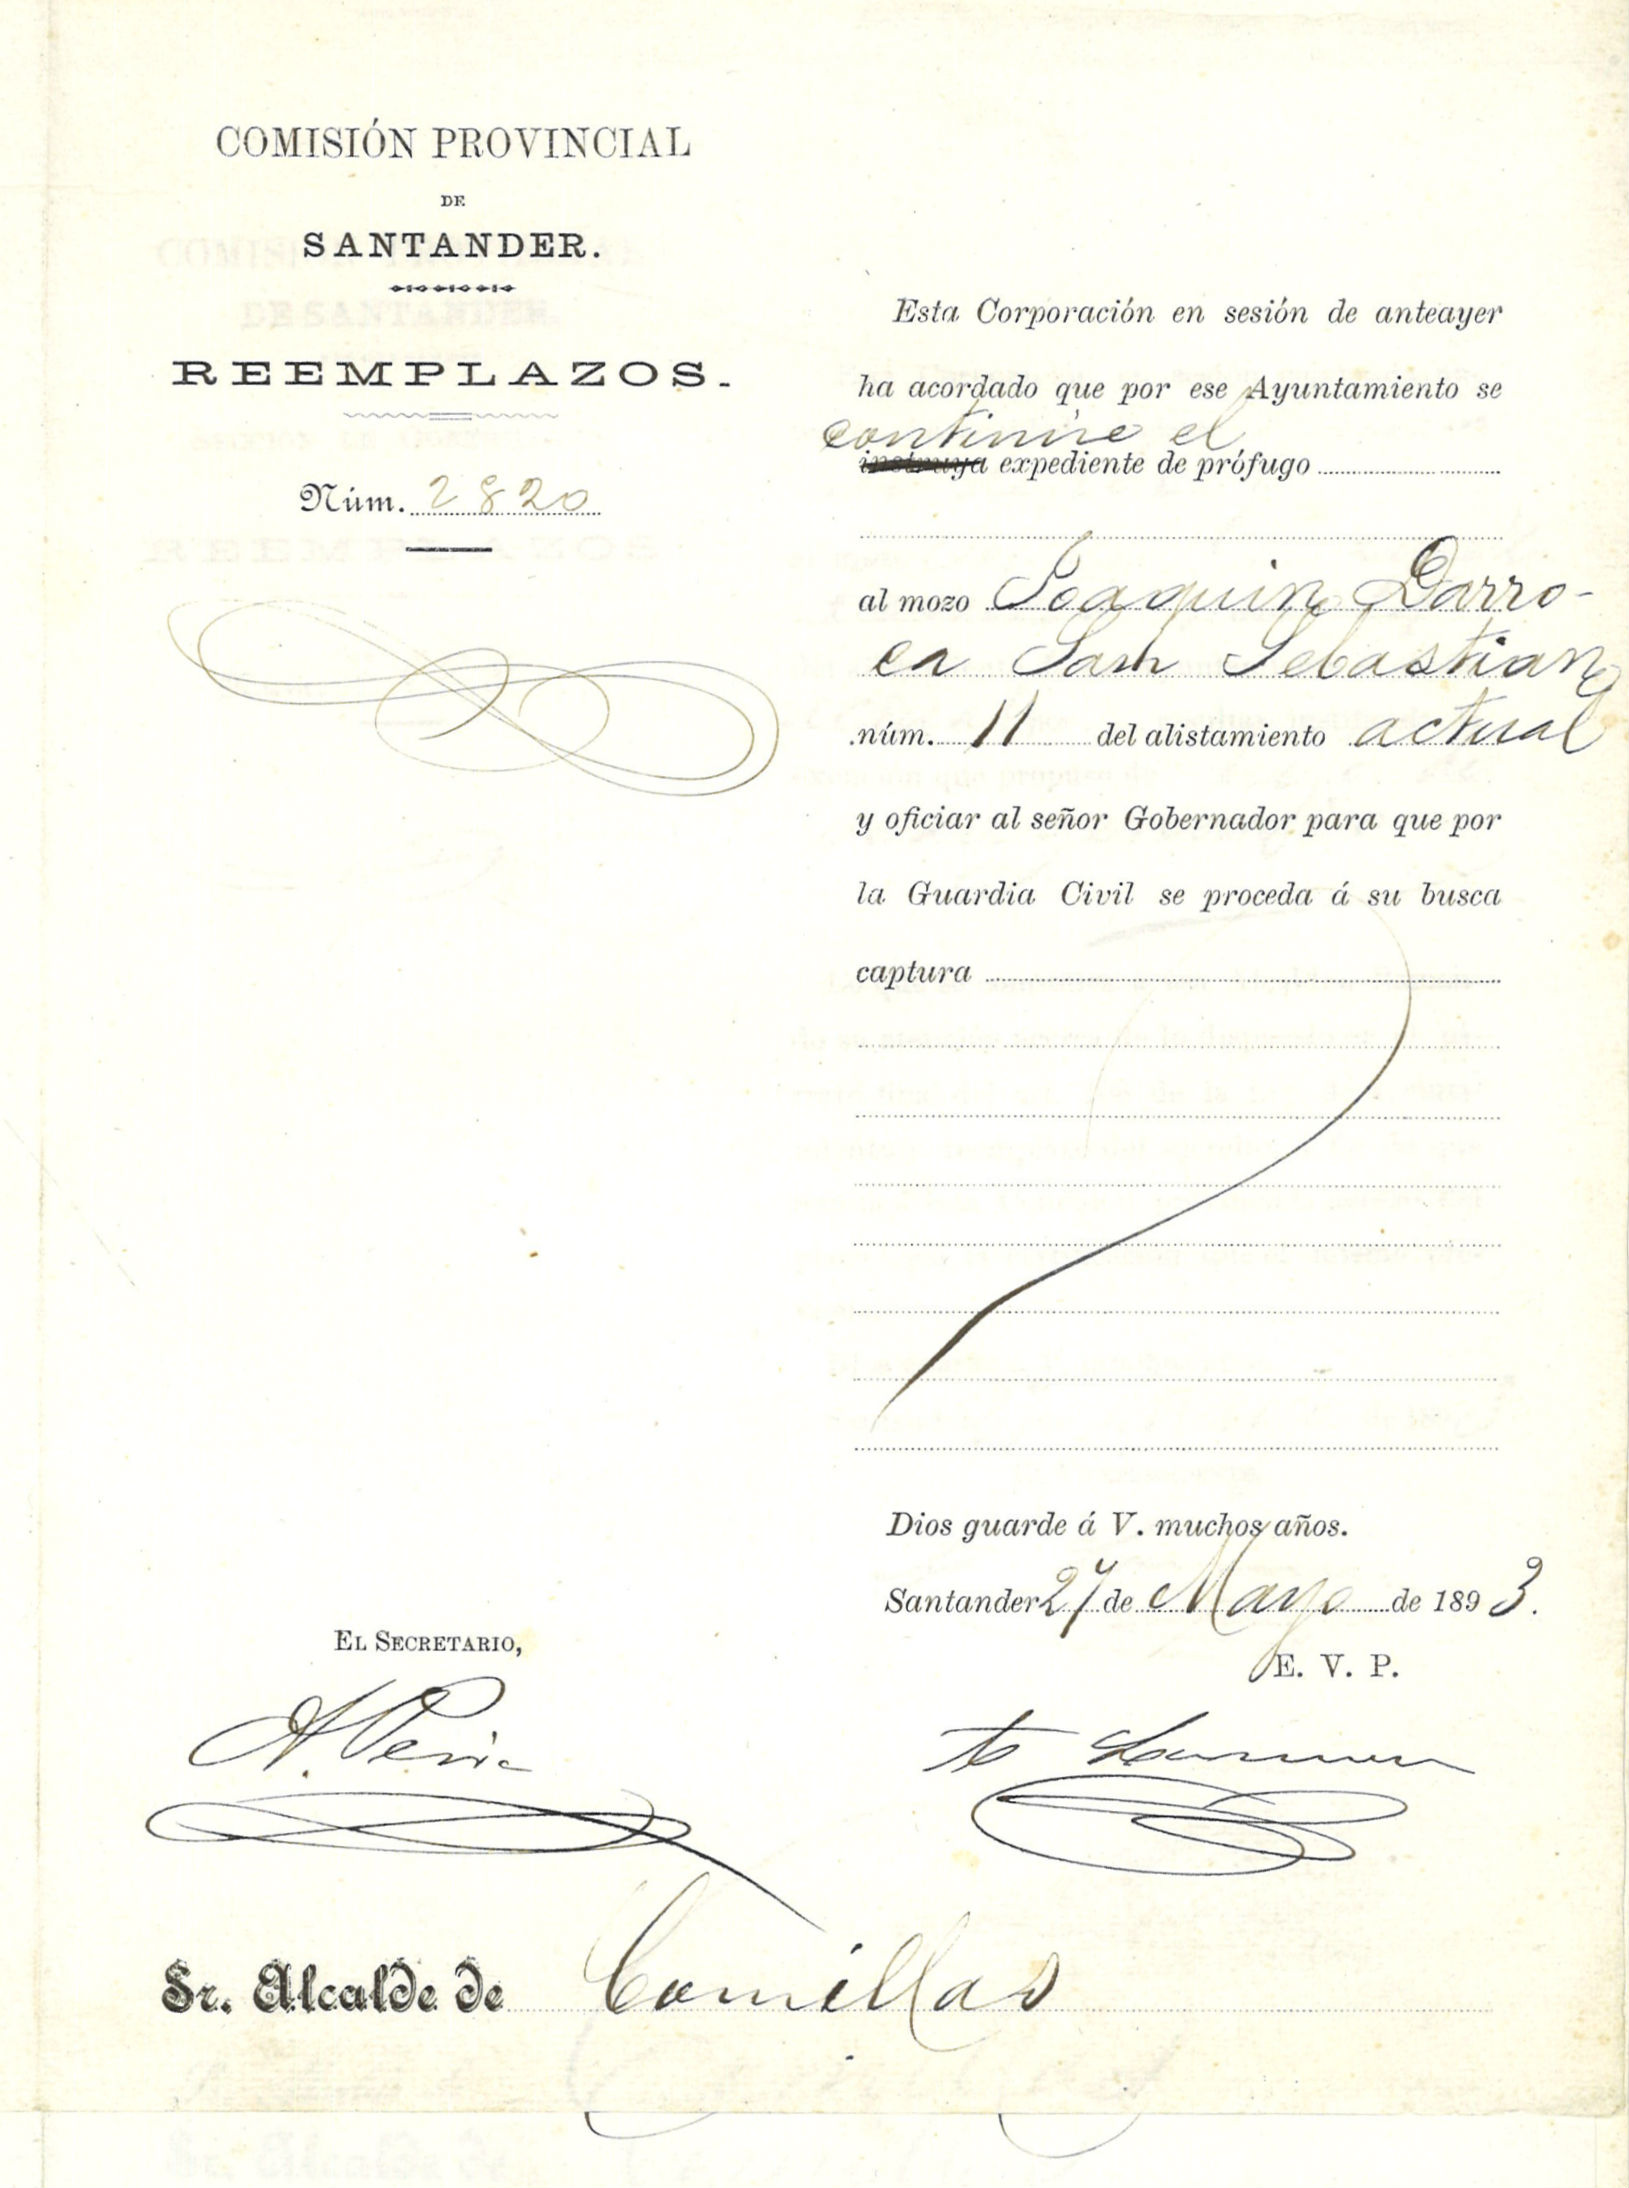 COMISIÓN PROVINCIAL
DE
SANTANDER.
REEMPLAZOS.
Núm. 2820
Esta Corporación en sesión de anteayer
ha acordado que por ese Ayuntamiento se
continúe el
instruya expediente de prófugo
al mozo Joaquin Darro-
ca San Sebastian
núm. 11 del alistamiento actual
y oficiar al señor Gobernador para que por
la Guardia Civil se proceda á su busca
captura
Dios guarde á V. muchos años.
Santander 27 de Mayo de 1893.
E. V. P.
EL SECRETARIO,
A. Peria
Sr. Alcalde de Comillas